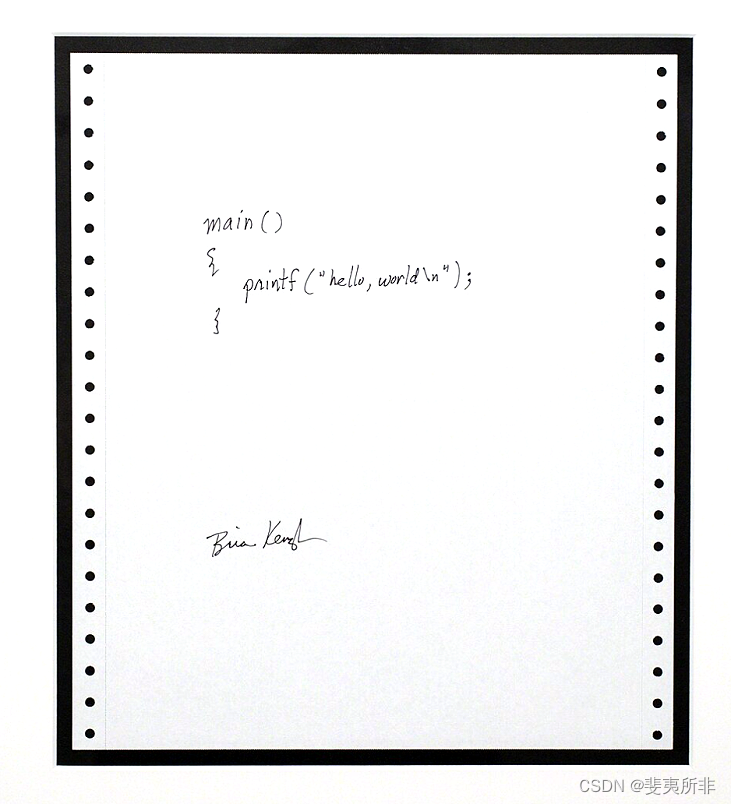 main()
{
printf("hello, world\n");
}
Brian Kernighan
CSDN @斐夷所非